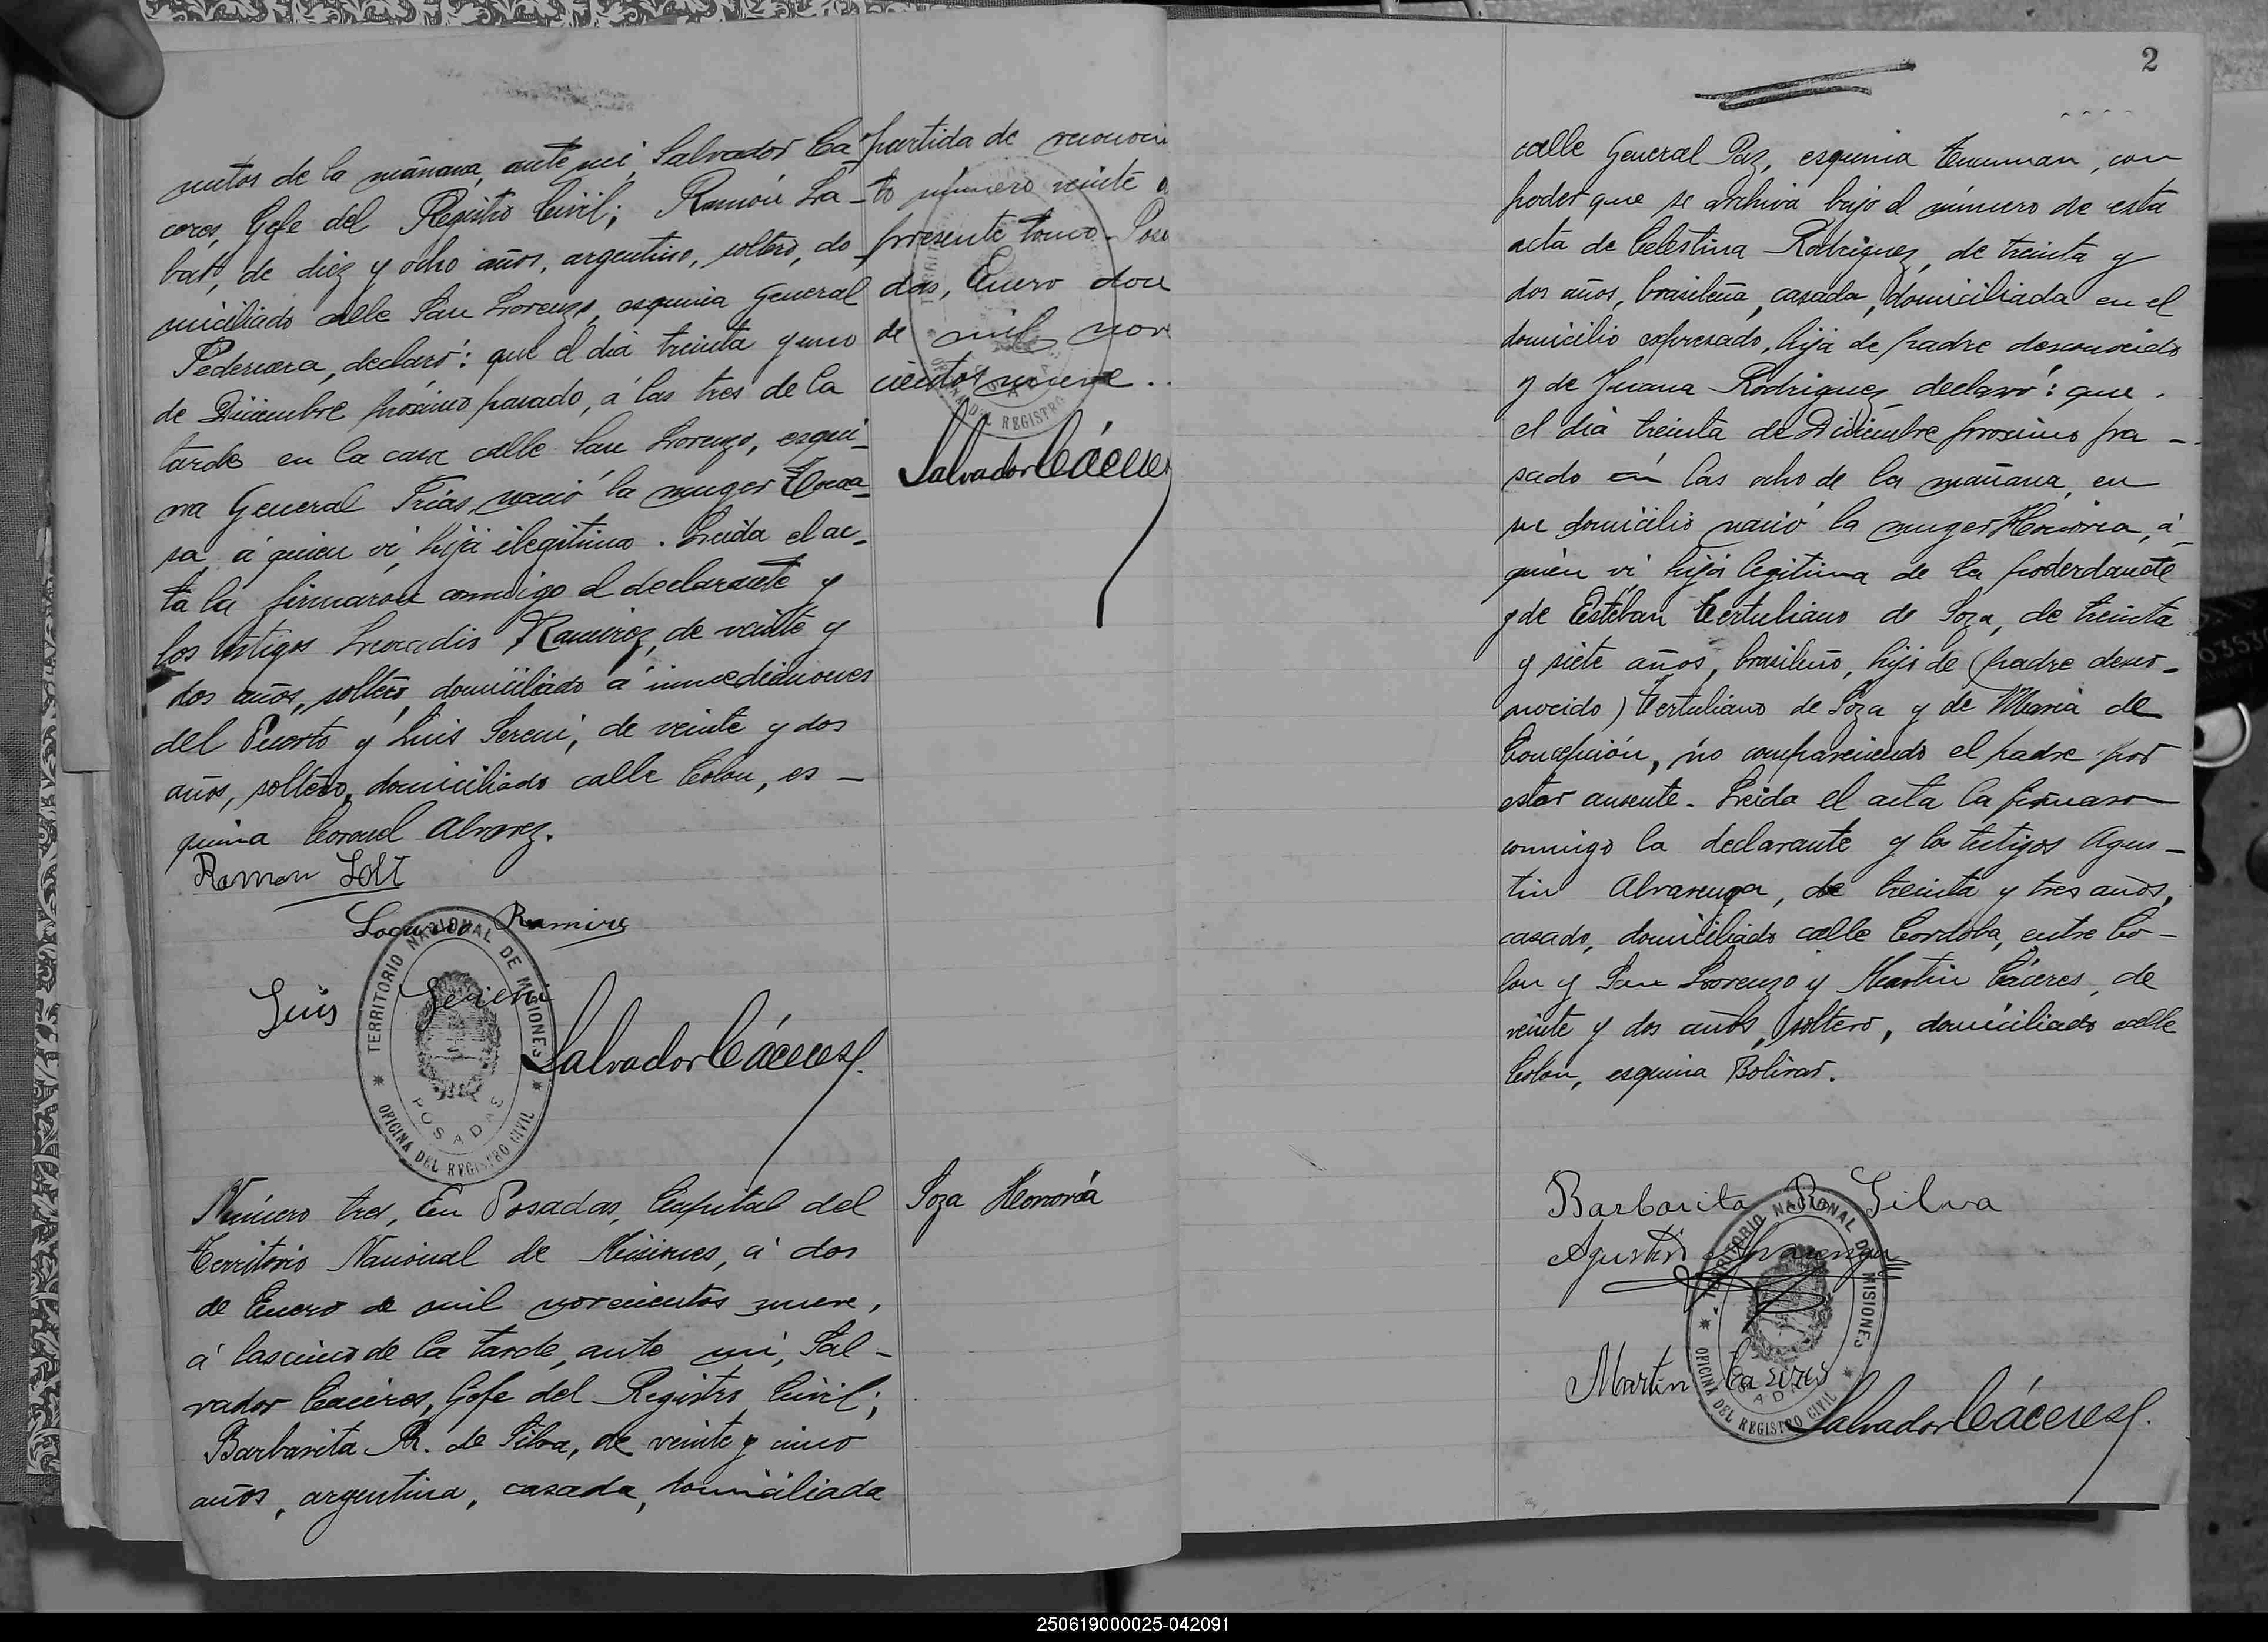 nutos de la mañana, ante mi, Salvador Cá-
ceres, Gefe del Registro Civil; Ramón La-
bat, de diez y ocho años, argentino, soltero, do-
miciliado calle San Lorenzo, esquina General
Pedernera, declaró: que el dia treinta y uno
de Diciembre próximo pasado, á las tres de la
tarde en la casa calle San Lorenzo, esqui-
na General Frias, nació la muger
sa, á quien vi, hija ilegitima. Leida el ac-
ta la firmaron conmigo el declarante y
los testigos Leocadio Ramirez, de veinte y
dos años, soltero, domiciliado á inmediaciones
del Puerto y Luis Sereni, de veinte y dos
años, soltero, domiciliado calle Colon, es-
quina Coronel Alvarez.
Ramon
Ramires
Luis Sereni
Salvador Cáceres
TERRITORIO NACIONAL DE MISIONES
POSADAS
OFICINA DEL REGISTRO CIVIL
partida de reconoci
to número veinte
presente tomo. Posa
das, Enero doce
de mil nove
cientos nueve.
Salvador Cáceres
Número tres, En Posadas, Capital del
Territorio Nacional de Misiones, á dos
de Enero de mil novecientos nueve,
á las cinco de la tarde, ante mi, Sal-
vador Cáceres, Gefe del Registro Civil;
Barbarita R. de Silva, de veinte y cinco
años, argentina, casada, domiciliada
Soza Honoria
2
calle General Paz, esquina Tucuman, con
poder que se archiva bajo el número de esta
acta de Celestina Rodriguez, de treinta y
dos años, brasileña, casada, domiciliada en el
domicilio expresado, hija de padre desconocido
y de Juana Rodriguez declaró: que
el dia treinta de Diciembre proximo pa-
sado á las ocho de la mañana, en
su domicilio nació la muger Honoria, á
quien vi hija legitima de la poderdante
y de Estéban Tertuliano de Soza, de treinta
y siete años, brasileño, hijo de (padre desco-
nocido) Tertuliano de Soza y de Maria de
Concepción, no compareciendo el padre por
estar ausente. Leida el acta la firmaron
conmigo la declarante y los testigos Agus-
tin Alvarenga, de treinta y tres años,
casado, domiciliado calle Cordoba, entre Co-
lon y San Lorenzo y Martin Cáceres, de
veinte y dos años, soltero, domiciliado calle
Colon, esquina Bolivar.
Barbarita R. Silva
Agustin Alvarenga
Martin Caseres
Salvador Cáceres
TERRITORIO NACIONAL DE MISIONES
OFICINA DEL REGISTRO CIVIL
250619000025-042091